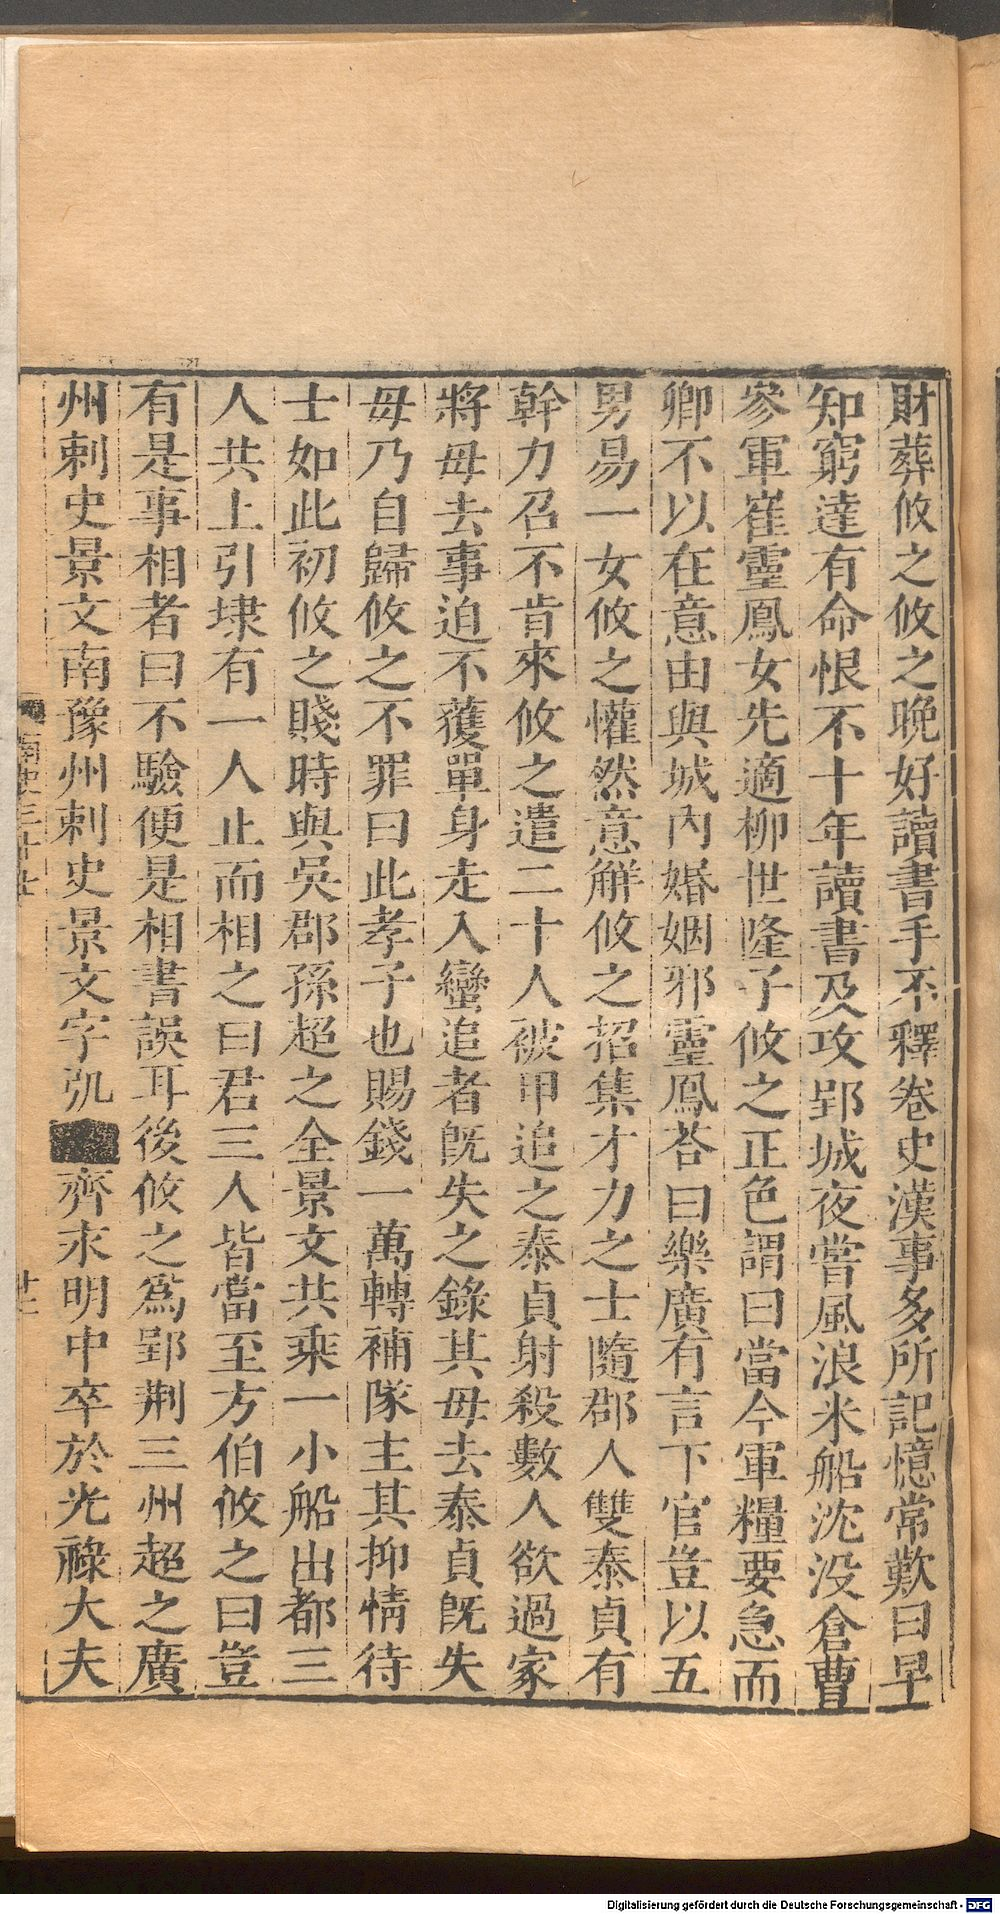 財葬攸之攸之晚好讀書手不釋卷史漢事多所記憶常歎曰早
知窮達有命恨不十年讀書及攻郢城夜嘗風浪米船沈没倉曹
參軍崔靈鳳女先適柳世隆子攸之正色謂曰當今軍糧要急而
卿不以在意由與城內婚姻邪靈鳳荅曰樂廣有言下官豈以五
男易一女攸之懽然意解攸之招集才力之士隨郡人雙泰貞有
幹力召不肯來攸之遣二十人被甲追之泰貞射殺數人欲過家
將母去事迫不獲單身走入蠻追者旣失之錄其母去泰貞旣失
母乃自歸攸之不罪曰此孝子也賜錢一萬轉補隊主其抑情待
士如此初攸之賤時與吳郡孫超之全景文共乘一小船出都三
人共上引埭有一人止而相之曰君三人皆當至方伯攸之曰豈
有是事相者曰不驗便是相書誤耳後攸之爲郢荆三州超之廣
州剌史景文南豫州剌史景文字弘齊永明中卒於光祿大夫
南史三十七
廿二
Digitalisierung gefördert durch die Deutsche Forschungsgemeinschaft - DFG